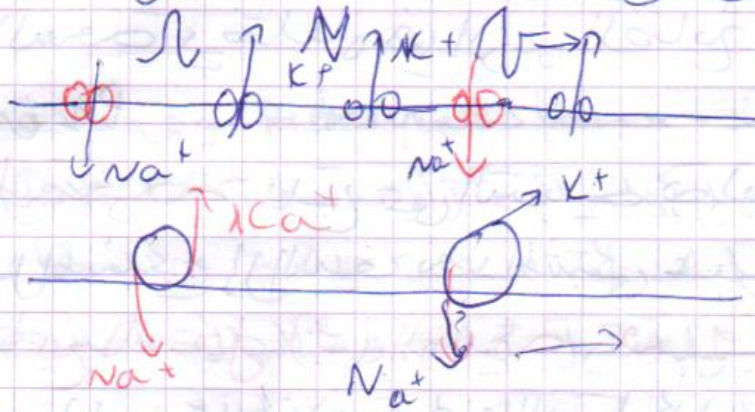 K+ K+
Na+ Na+
Ka+ K+
Na+ Na+